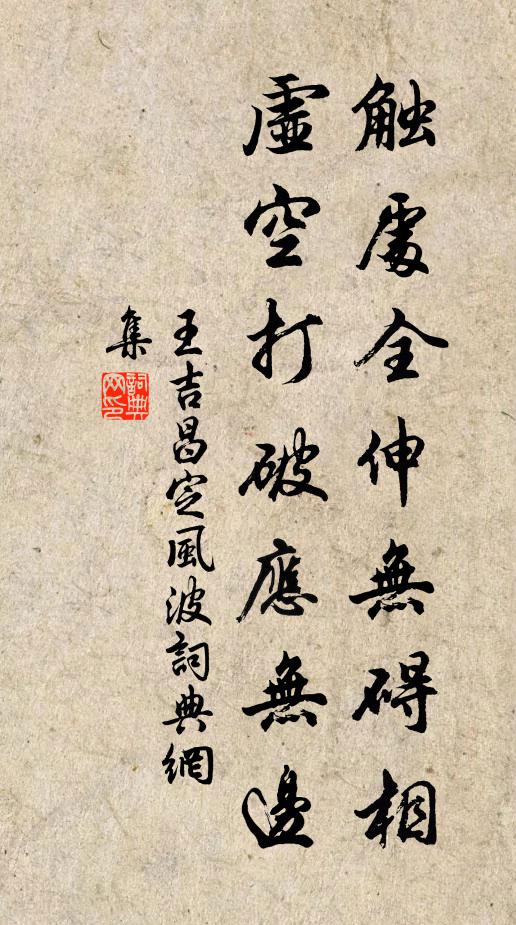 触處全伸無碍相
虛空打破應無邊
王吉昌定風波詞典網
集
詞典
网印